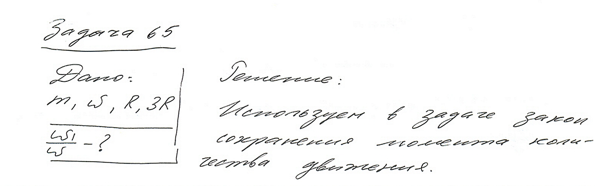 Задача 65
Дано:
m, ω, R, 3R
ω₁/ω - ?
Решение:
Используем в задаче закон
сохранения момента коли-
чества движения.